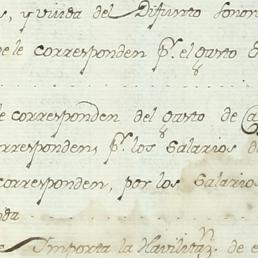 , y viuda del Difunto Honor
le corresponden p.r el gasto
le corresponden del gasto de Ca
rresponden, p.r los Salarios
corresponden, por los Salarios
Importa la Havilitaz.n de e